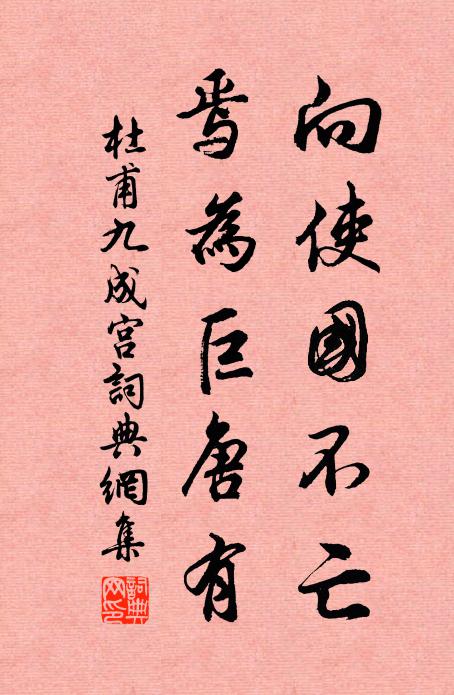 向使國不亡
焉為巨唐有
杜甫九成宮詞典網集
詞典网印